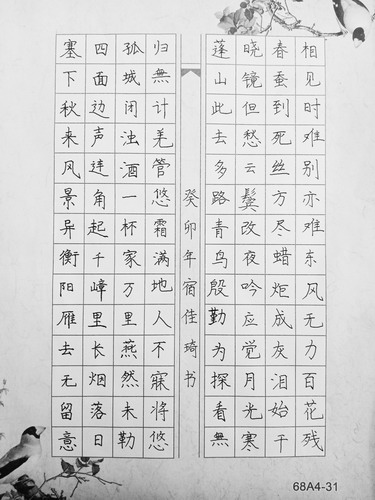 相见时难别亦难东风无力百花残
春蚕到死丝方尽蜡炬成灰泪始干
晓镜但愁云鬓改夜吟应觉月光寒
蓬山此去多路青鸟殷勤为探看無
癸卯年宿佳琦书
塞下秋来风景异衡阳雁去无留意
四面边声连角起千嶂里长烟落日
孤城闭浊酒一杯家万里燕然未勒
归無计羌管悠霜满地人不寐将悠
68A4-31